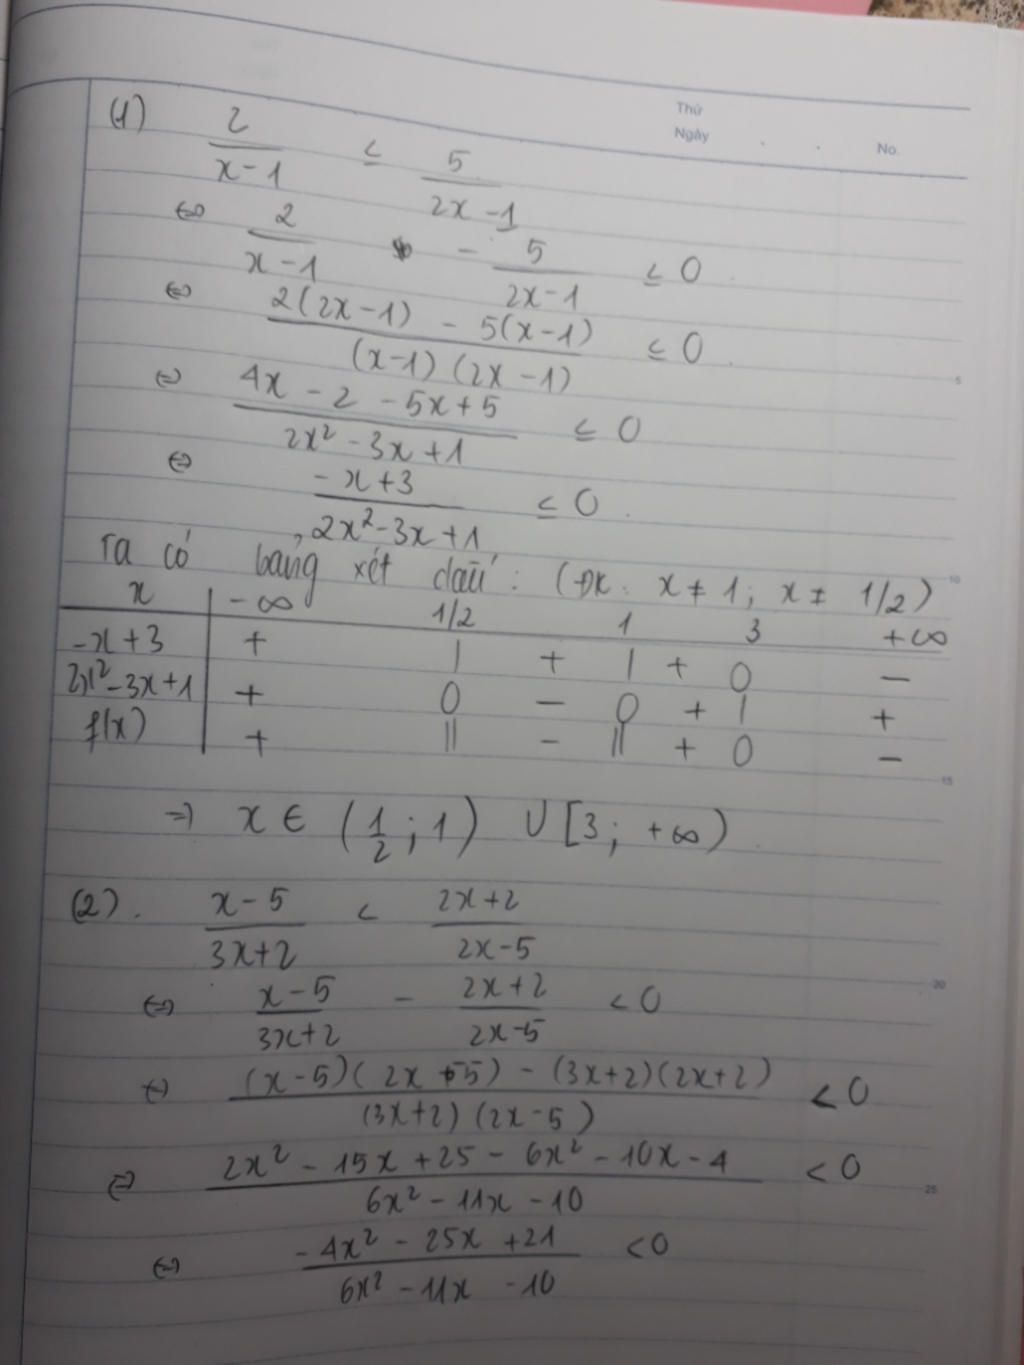 Thứ
Ngày . . No.
(1) 2/(x-1) ≤ 5/(2x-1)
⇔ 2/(x-1) - 5/(2x-1) ≤ 0.
⇔ (2(2x-1) - 5(x-1))/((x-1)(2x-1)) ≤ 0.
⇔ (4x - 2 - 5x + 5)/(2x² - 3x + 1) ≤ 0
⇔ (-x + 3)/(2x² - 3x + 1) ≤ 0.
Ta có bảng xét dấu: (ĐK: x ≠ 1; x ≠ 1/2)
x | -∞ 1/2 1 3 +∞
-x + 3 | + | + | + 0 -
2x² - 3x + 1 | + 0 - 0 + | +
f(x) | + || - || + 0 -
⇒ x ∈ (1/2; 1) ∪ [3; +∞)
(2). (x-5)/(3x+2) < (2x+2)/(2x-5)
⇔ (x-5)/(3x+2) - (2x+2)/(2x-5) < 0
⇔ ((x-5)(2x-5) - (3x+2)(2x+2))/((3x+2)(2x-5)) < 0
⇔ (2x² - 15x + 25 - 6x² - 10x - 4)/(6x² - 11x - 10) < 0
⇔ (-4x² - 25x + 21)/(6x² - 11x - 10) < 0
5
10
15
20
25